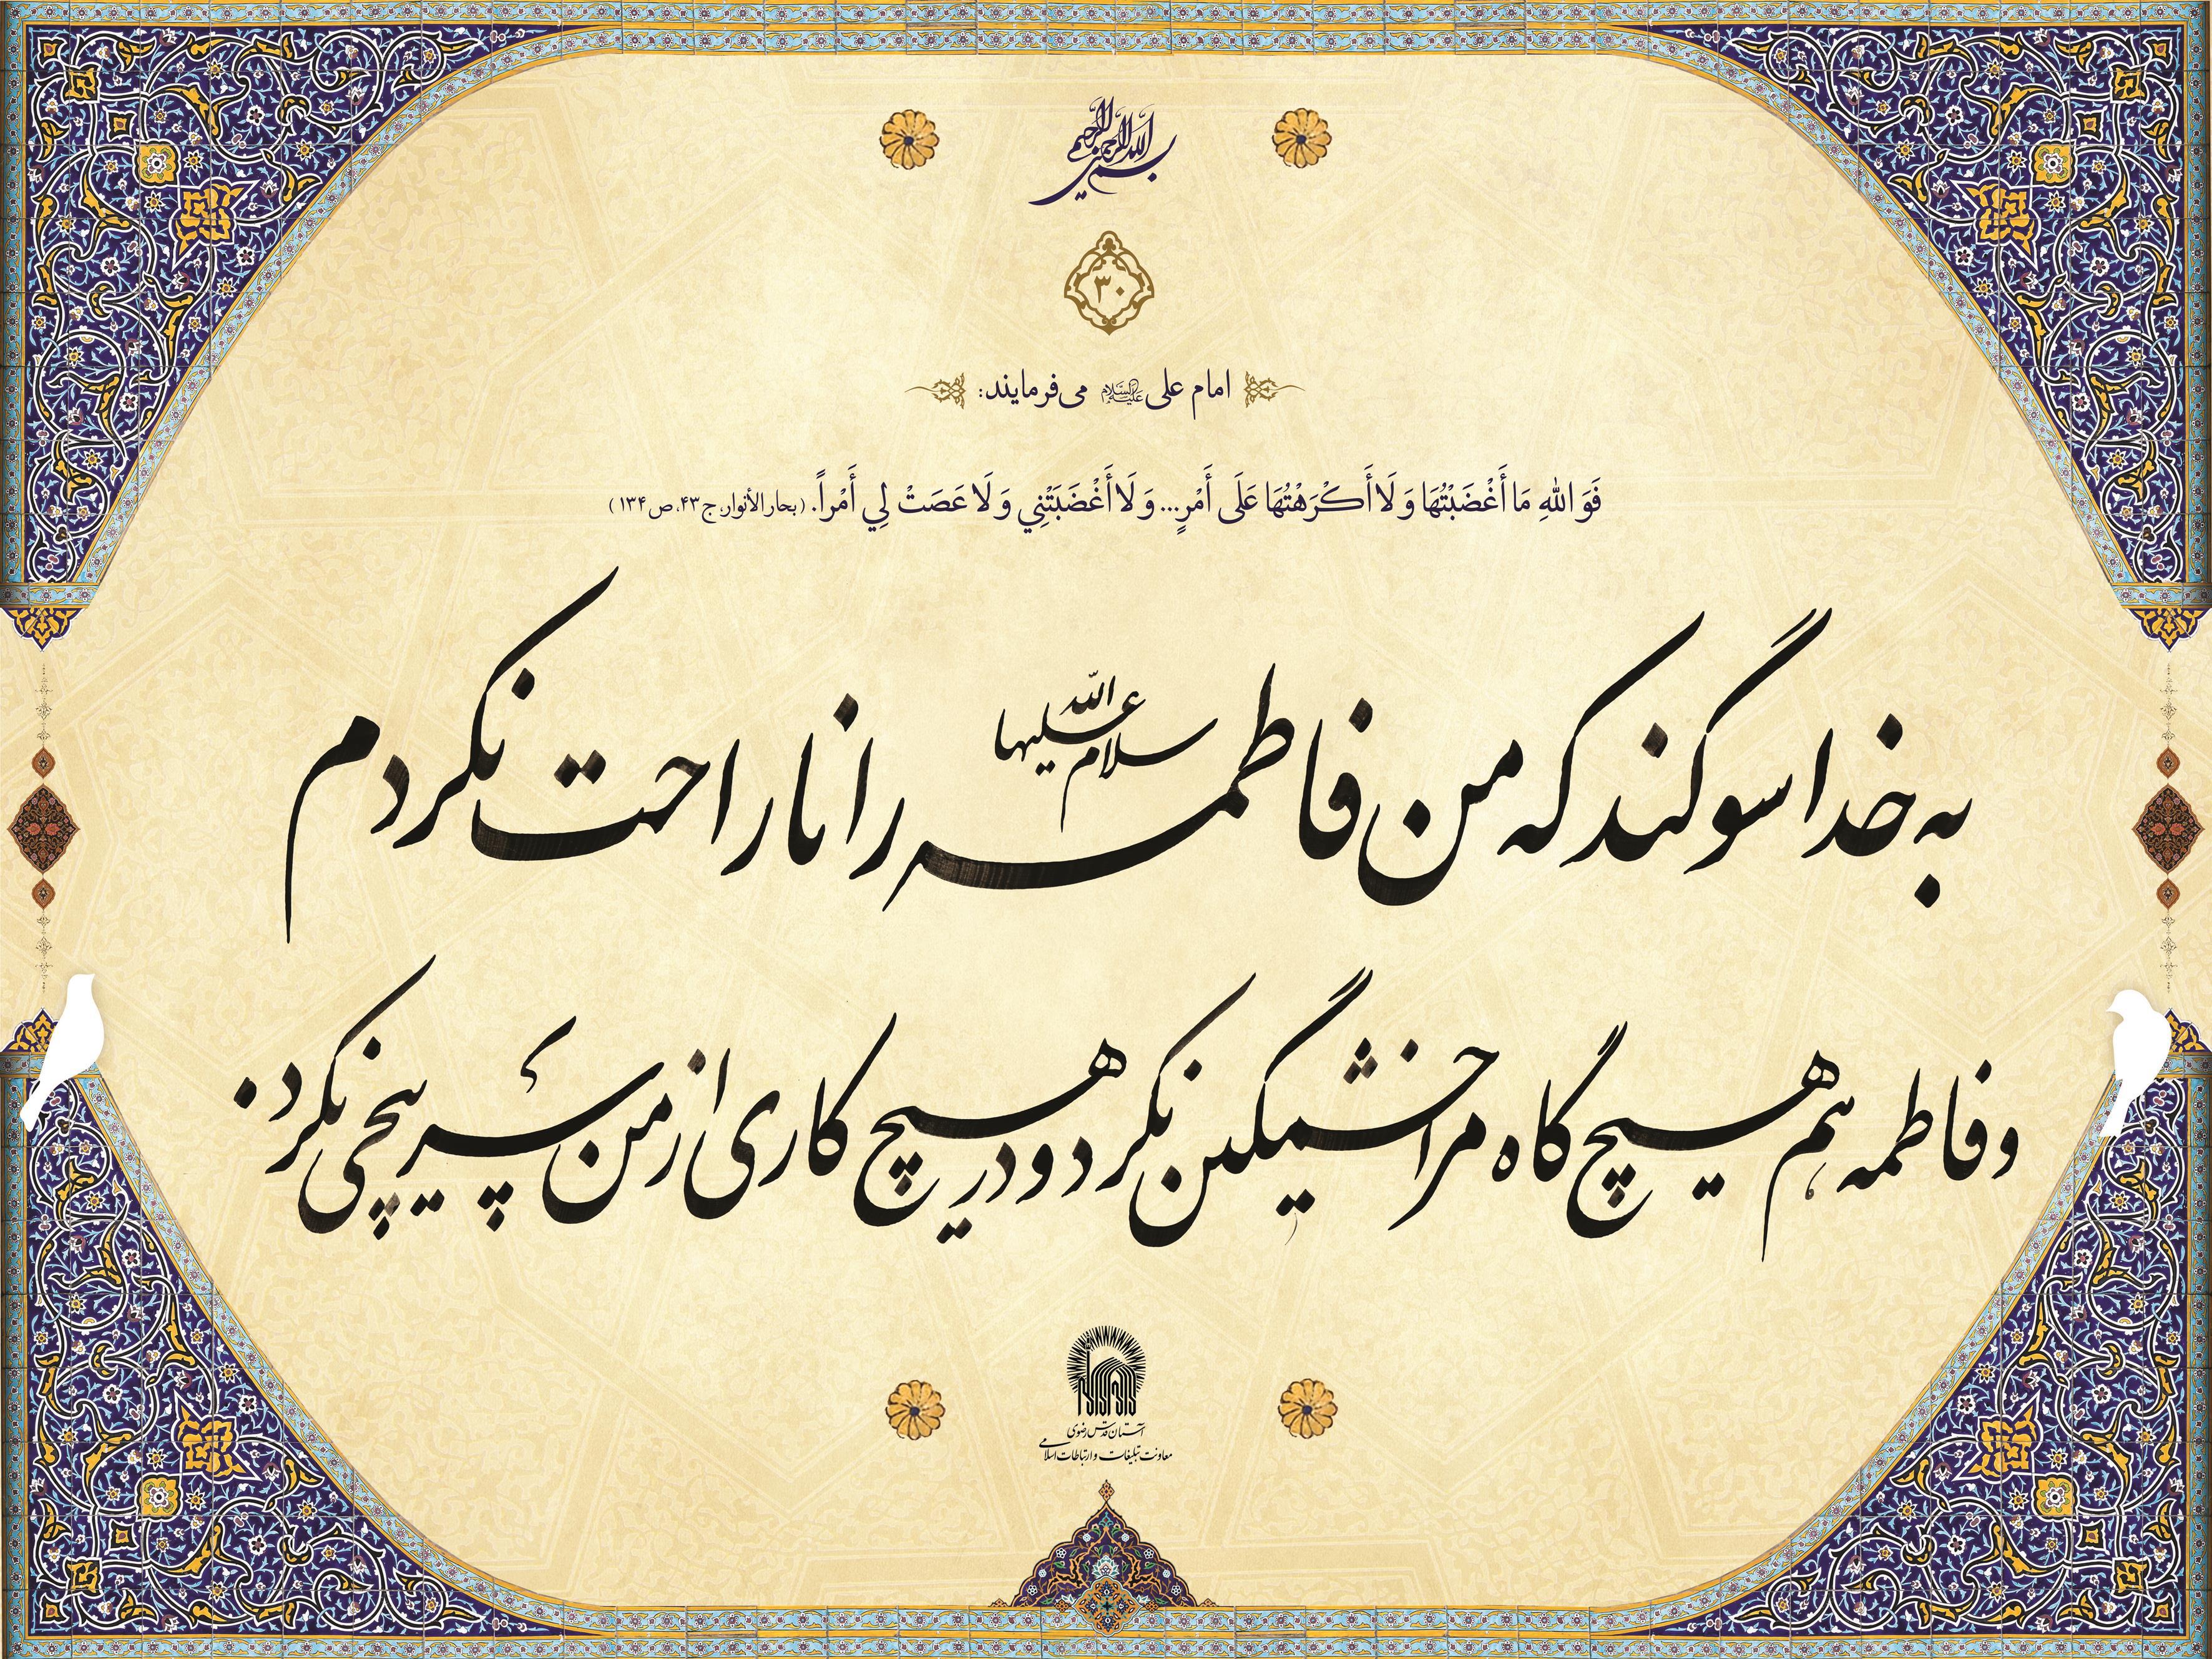 بسم الله الرحمن الرحیم
۳۰
امام علی علیه‌السلام می‌فرمایند:
فَوَ اللّٰهِ مَا أَغْضَبْتُهَا وَ لَا أَكْرَهْتُهَا عَلَى أَمْرٍ... وَ لَا أَغْضَبَتْنِي وَ لَا عَصَتْ لِي أَمْراً. (بحارالأنوار، ج ۴۳، ص ۱۳۴)
به خدا سوگند که من فاطمه سلام الله علیها را ناراحت نکردم
و فاطمه هم هیچ گاه مرا خشمگین نکرد و در هیچ کاری از من سرپیچی نکرد.
آستان قدس رضوی
معاونت تبلیغات و ارتباطات اسلامی